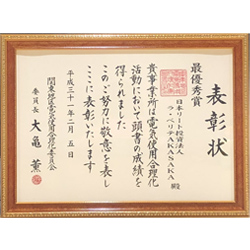 表彰状
最優秀賞
日本リート投資法人
ラ・ベリテAKASAKA 殿
貴事業所は電気使用合理化
活動において頭書の成績を
得られました
このご努力に敬意を表し
ここに表彰いたします
平成三十一年二月五日
関東地区電気使用合理化委員会
委員長 大亀 薫